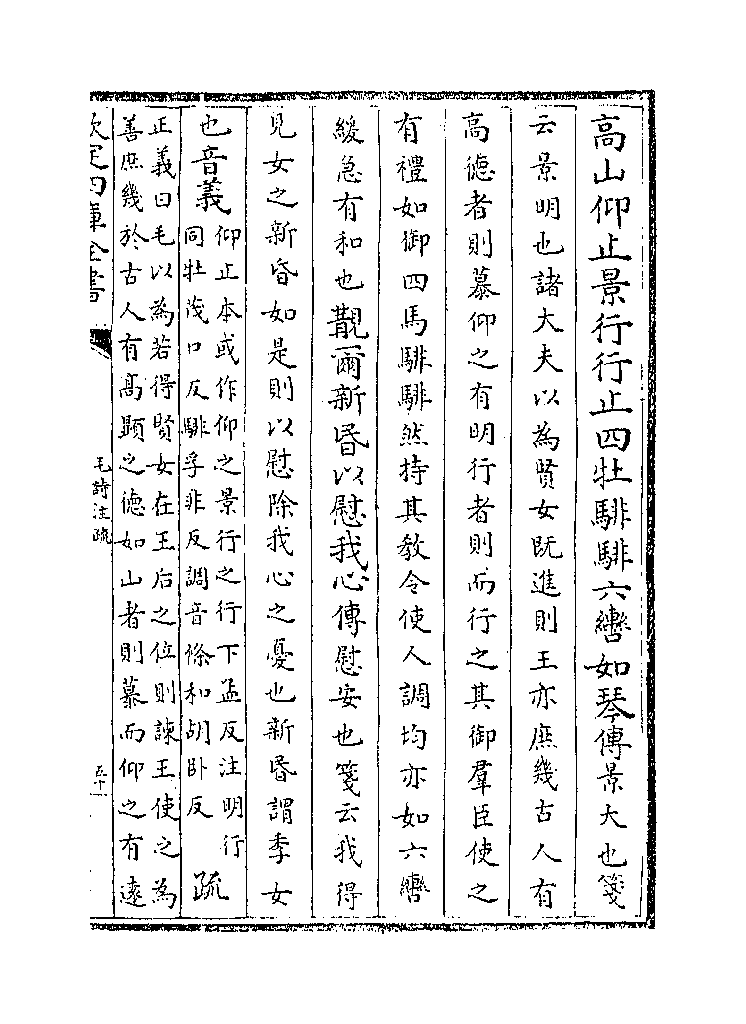 高山仰止景行行止四牡騑騑六轡如琴傳景大也箋
云景明也諸大夫以為賢女既進則王亦庶幾古人有
高德者則慕仰之有明行者則而行之其御羣臣使之
有禮如御四馬騑騑然持其教令使人調均亦如六轡
緩急有和也覯爾新昏以慰我心傳慰安也箋云我得
見女之新昏如是則以慰除我心之憂也新昏謂季女
也音義仰止本或作仰之景行之行下孟反注明行
同牡茂口反騑孚非反調音條和胡卧反
疏
正義曰毛以為若得賢女在王后之位則諫王使之為
善庶幾於古人有髙顯之德如山者則慕而仰之有遠
欽定四庫全書
毛詩注疏
五十一